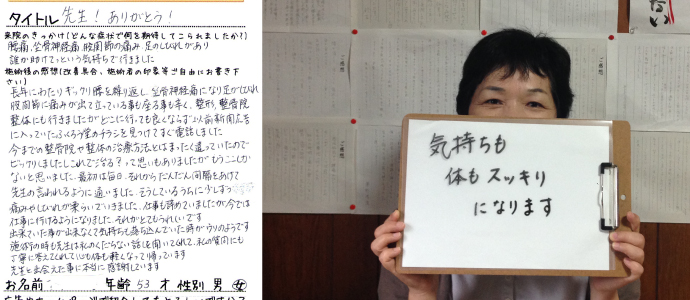 タイトル 先生！ありがとう！
来院のきっかけ(どんな症状で何を期待してこられましたか?)
腰痛、坐骨神経痛、股関節の痛み、足のしびれがあり
誰か助けてっという気持ちで行きました
施術後の感想(改善具合、施術者の印象等ご自由にお書き下
さい)
長年にわたりギックリ腰を繰り返し、坐骨神経痛になり足がしびれ
股関節に痛みが出て立っている事も座る事も辛く、整形、整骨院
整体にも行きましたがどこに行っても良くならず以前新聞広告
に入っていたふくろう堂のチラシを見つけてすぐ電話しました
今までの整骨院や整体の治療方法とはまったく違っていたので
ビックリしましたしこれで治る？って思いもありましたがもうここしか
ないと思いました。最初は毎日、それからだんだん間隔をあけて
先生の言われるように通いました。そうしているうちに少しずつ
痛みやしびれが楽になっていきました。仕事も辞めていましたが今では
仕事に行けるようになりました。それがとてもうれしいです
出来ていた事が出来なくて気持ちも落ち込んでいた時がウソのようです
施術の時も先生は私のくだらない話しを聞いてくれて、私の質問にも
丁寧に答えてくれて心も体も軽くなって帰っています
先生と出会えた事に本当に感謝しています
お名前 年齢 53 才 性別 男 女
気持ちも
体もスッキリ
になります